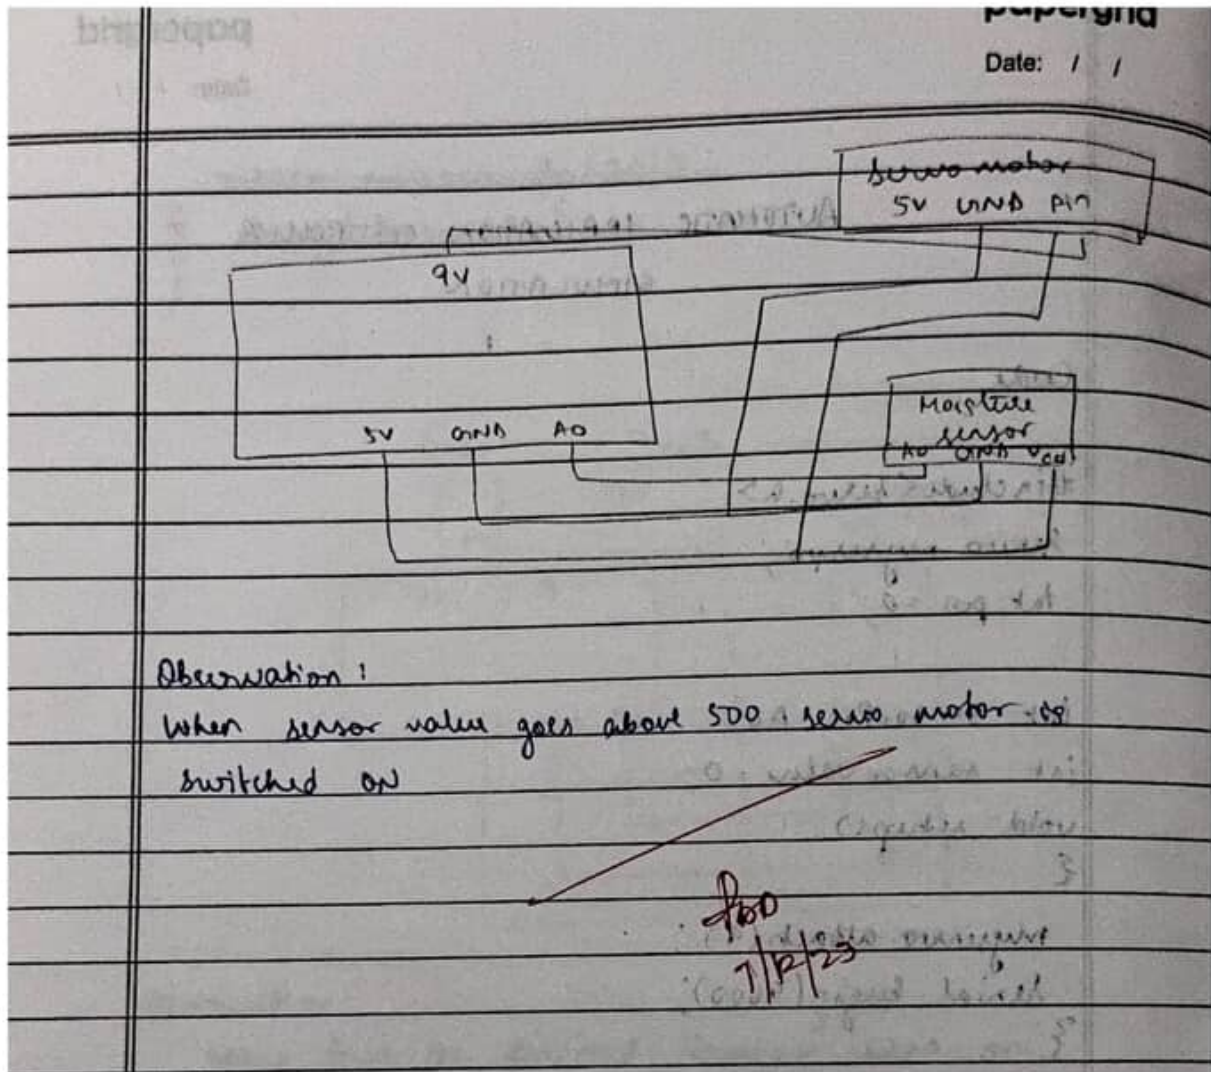 papergrid
Date: / /
Servo motor
5V GND Pin
9V
5V GND A0
Moisture
sensor
A0 GND Vcc
Observation:
When sensor value goes above 500 servo motor is
switched ON
7/12/23